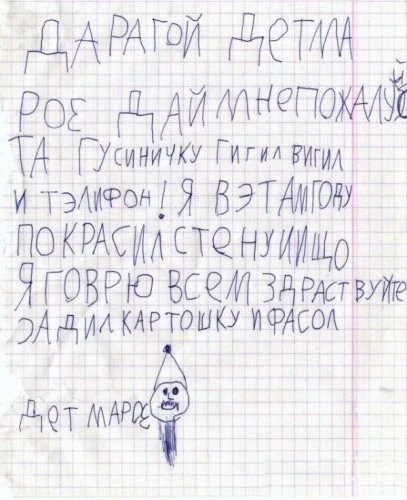 ДАРАГОЙ ДЕТМА
РОЗ ДАЙ МНЕПОЖАЛУЙС
ТА ГУСИНИЧКУ ГИГИЛ ВИГИЛ
И ТЭЛИФОН! Я ВЭТАМГОДУ
ПОКРАСИЛСТЕНУИИЩО
Я ГОВРЮ ВСЕМ ЗДРАСТВУЙТЕ
ЭАДИЛ КАРТОШКУ И ФАСОЛ
ДЕТ МАРОЗ